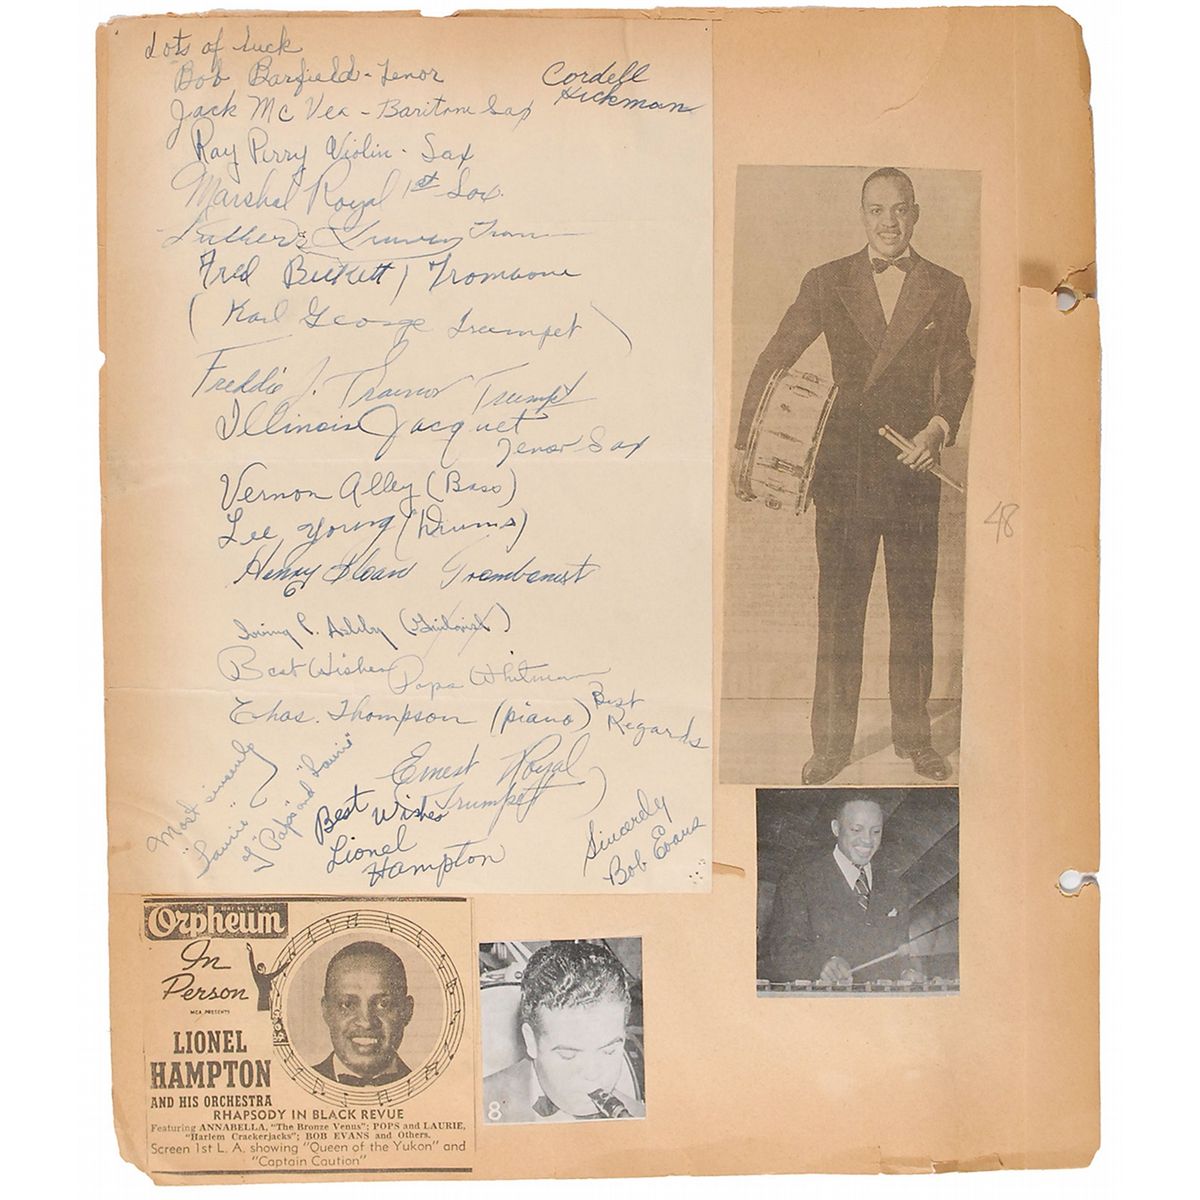 Lots of luck
Bob Barfield - Tenor
Cordell
Hickman
Jack Mc Vea - Baritone Sax
Ray Perry Violin - Sax
Marshal Royal 1st Sax.
Fred Beckett) Trombone
(Karl George Trumpet)
Freddie J. Trainor Trumpt
Illinois Jacquet
Tenor Sax
Vernon Alley (Bass)
Lee Young (Drums)
Henry Sloan Trombonist
Irving C. Ashby (Guitarist)
Best Wishes Pops Whitman
Chas. Thompson (piano) Best
Regards
Ernest Royal
Trumpet
Most sincerely
"Laurie"
of "Pops and Laurie"
Best Wishes
Lionel
Hampton
Sincerely
Bob Evans
48
Orpheum
In
Person
MCA PRESENTS
LIONEL
HAMPTON
AND HIS ORCHESTRA
RHAPSODY IN BLACK REVUE
Featuring ANNABELLA, "The Bronze Venus"; POPS and LAURIE,
"Harlem Crackerjacks"; BOB EVANS and Others.
Screen 1st L. A. showing "Queen of the Yukon" and
"Captain Caution"
8